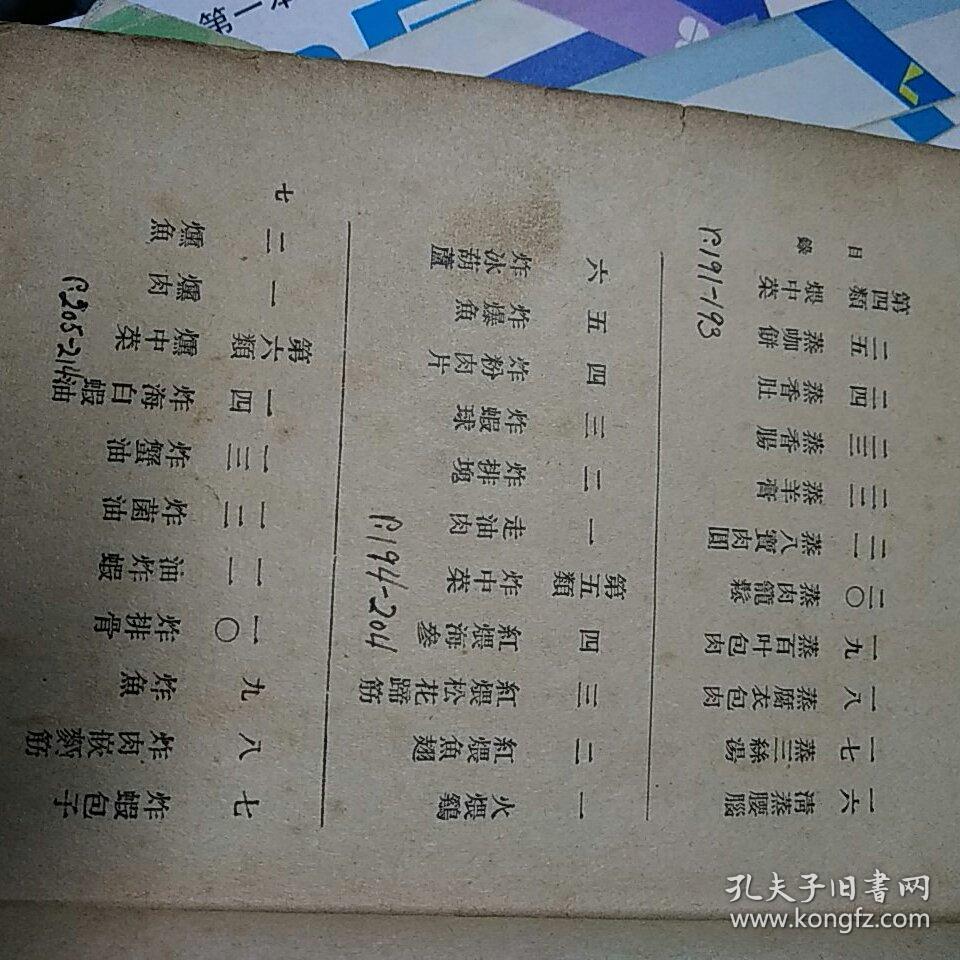 目錄
一六 清蒸腰腦
一七 蒸三絲湯
一八 蒸腐衣包肉
一九 蒸百叶包肉
二〇 蒸肉籠鬆
二一 蒸八寶肉圓
二二 蒸羊膏
二三 蒸香腸
二四 蒸香肚
二五 蒸咖餅
第四類 煨中菜
P.191-193
一 火煨鷄
二 紅煨魚翅
三 紅煨松花蹄筋
四 紅煨海參
第五類 炸中菜
P.194-204
一 走油肉
二 炸排塊
三 炸蝦球
四 炸粉肉片
五 炸爆魚
六 炸冰葫蘆
七 炸蝦包子
八 炸肉嵌麪筋
九 炸魚
一〇 炸排骨
一一 油炸蝦
一二 炸菌油
一三 炸蟹油
一四 炸海白蝦油
第六類 燻中菜
P.205-214
一 燻肉
二 燻魚
七
第一本
孔夫子旧書网
www.kongfz.com